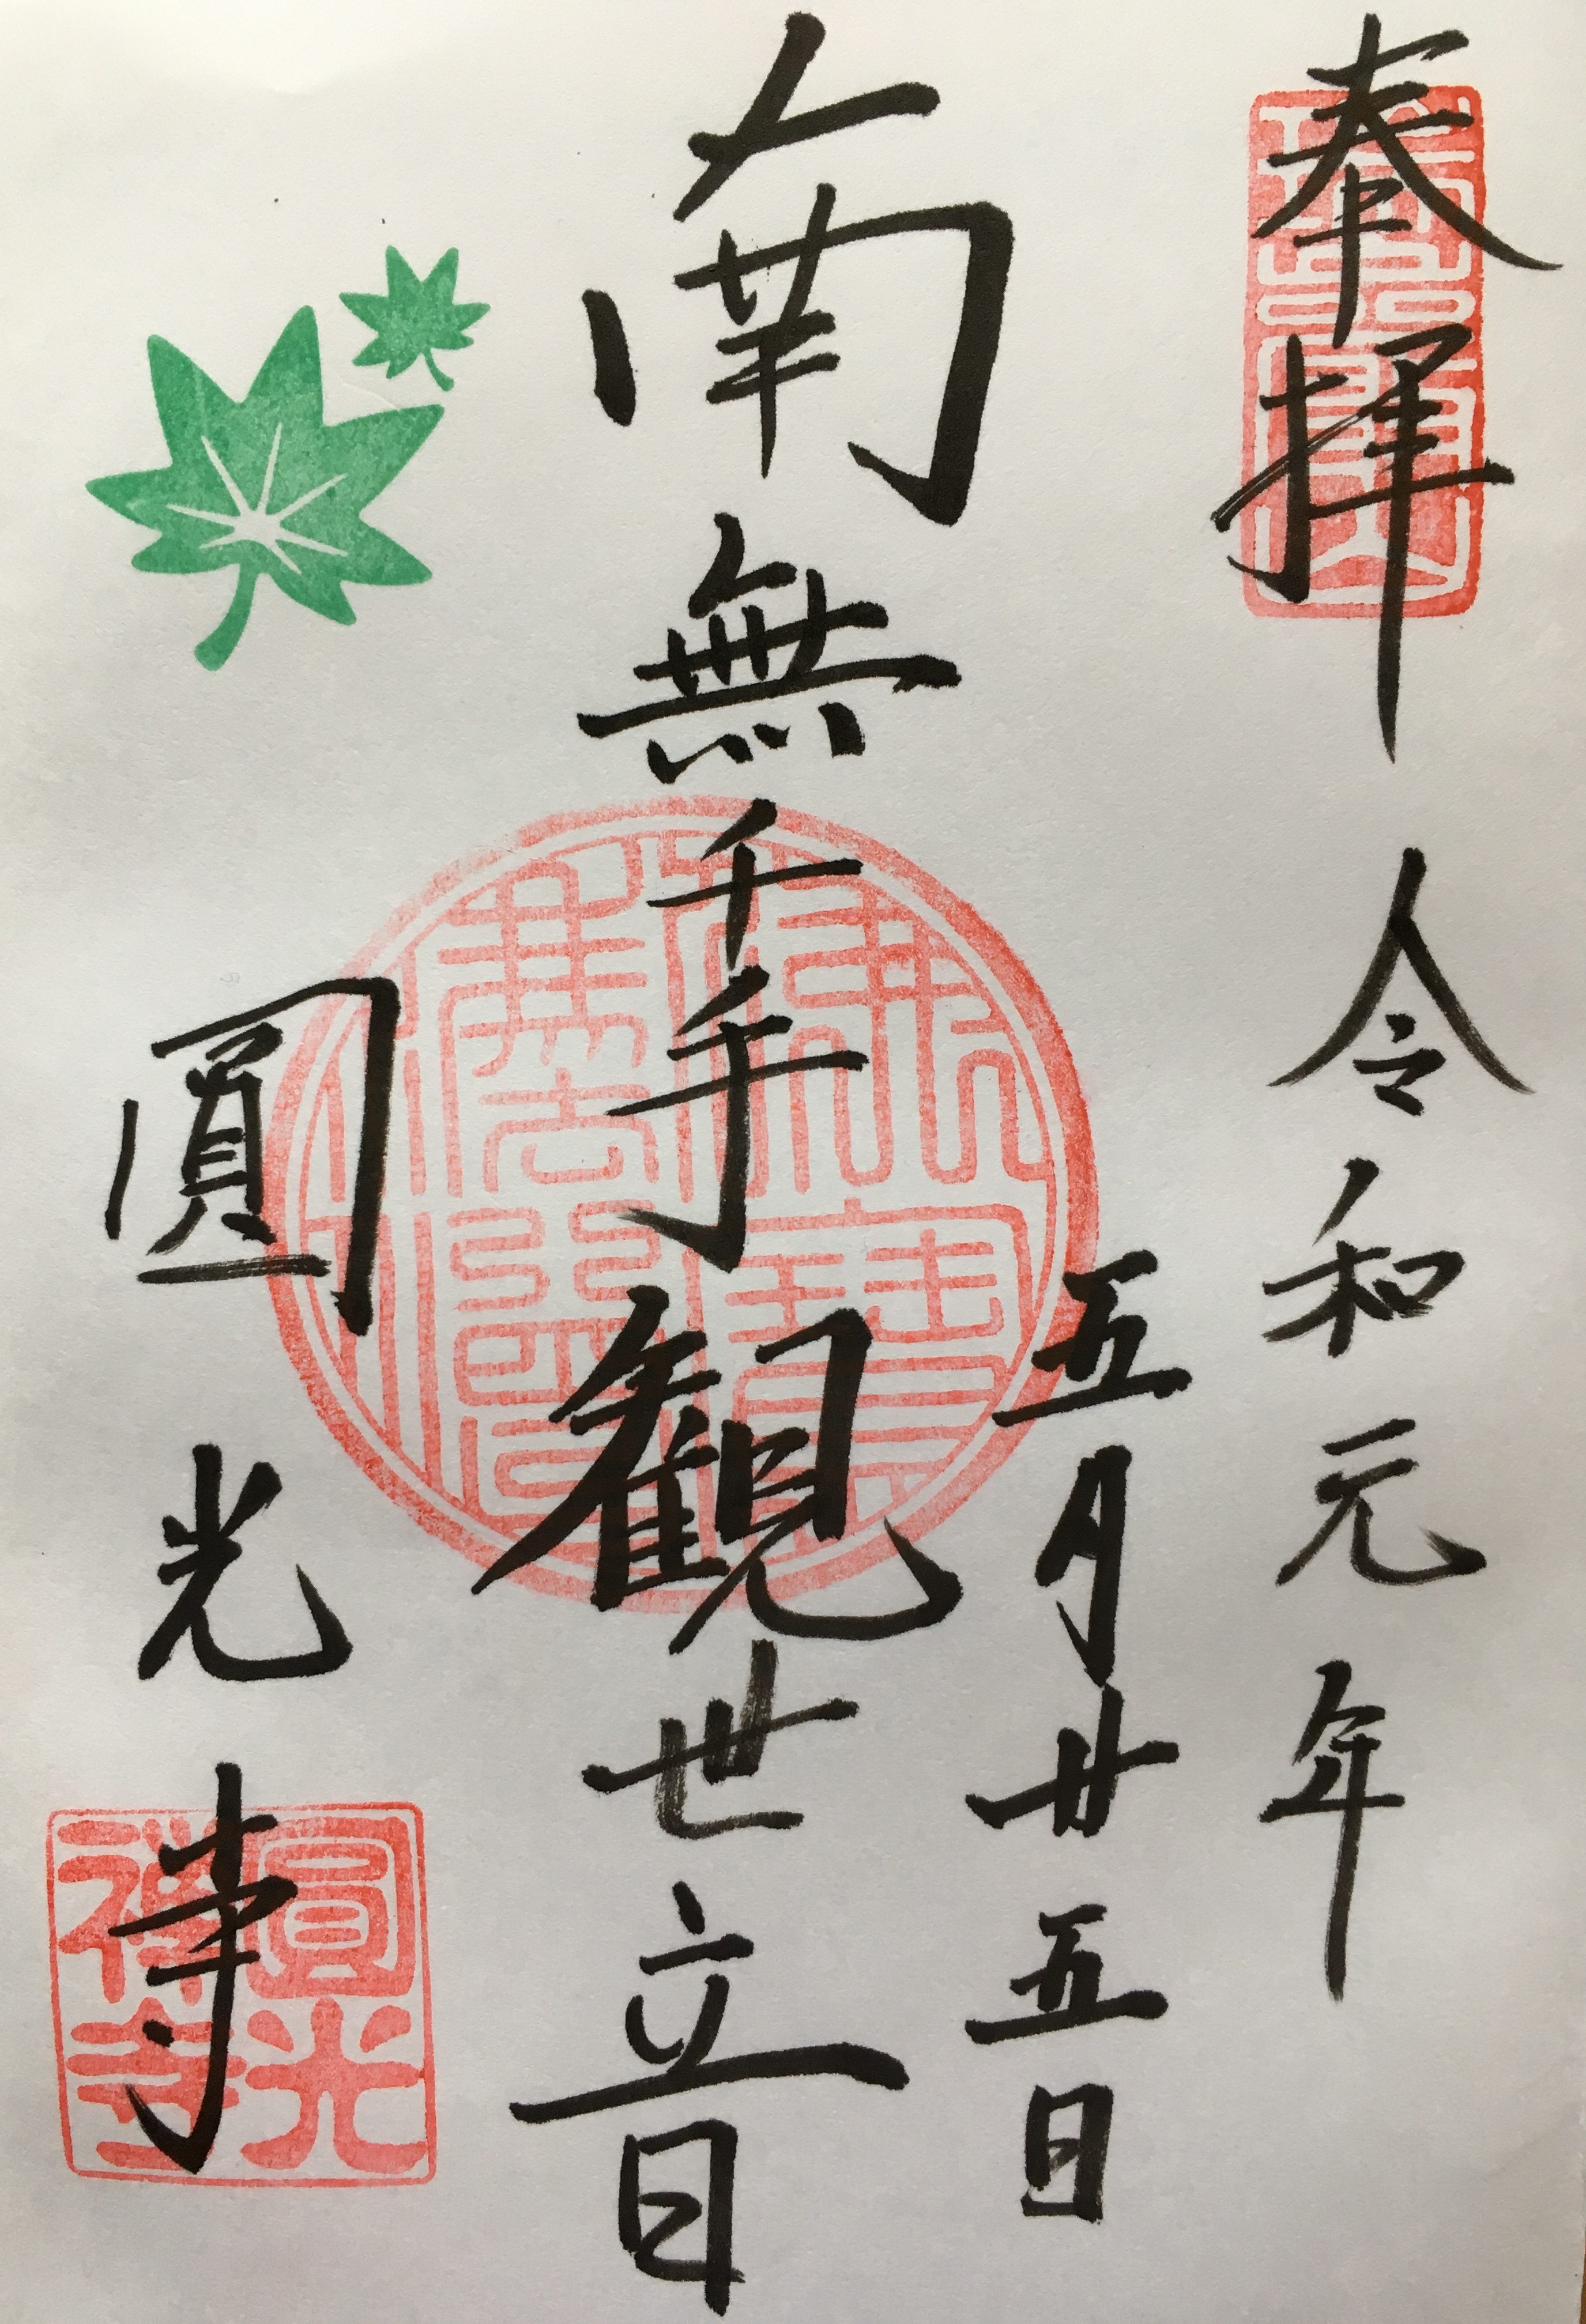 奉拝
令和元年
五月廿五日
南無千手観世音
圓光寺
圓光
禅寺
佛法僧寶